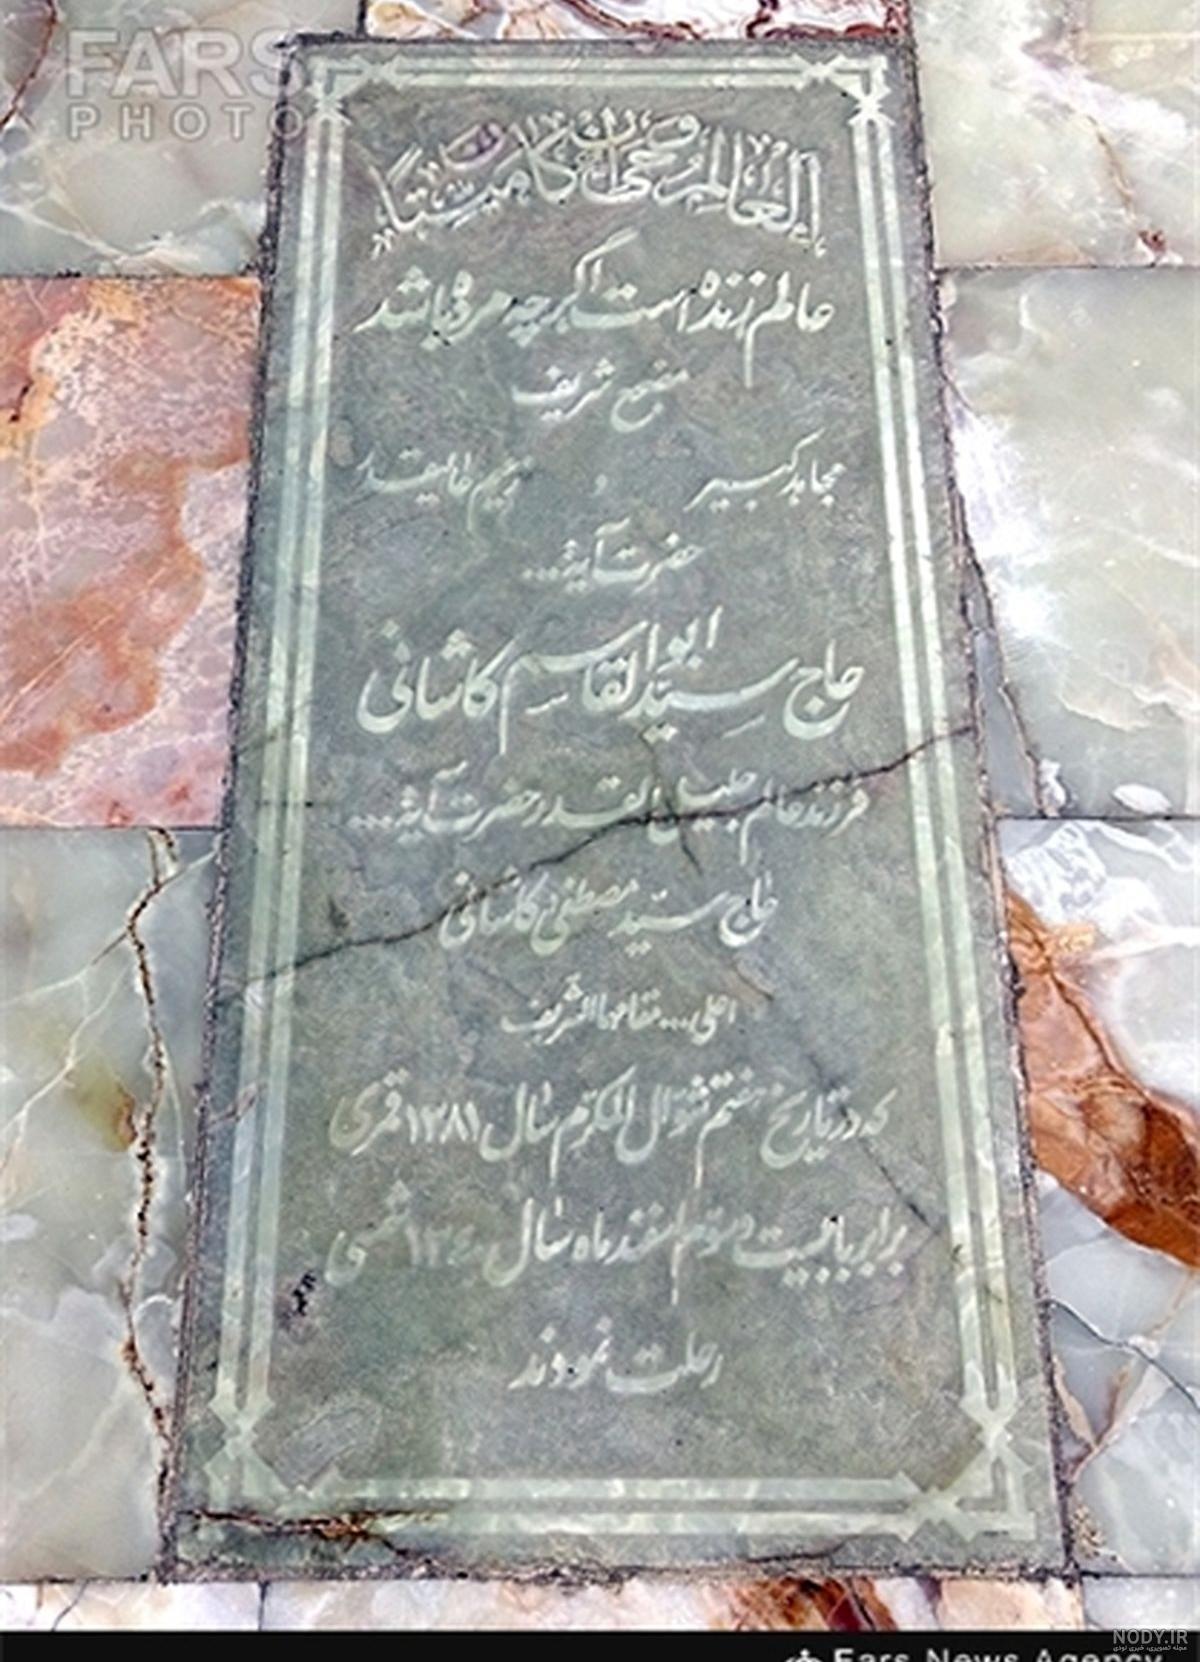 FARS
PHOTO
العالم حی و ان کان میتا
عالم زنده است اگرچه مرده باشد
مضجع شریف
مجاهد کبیر و زعیم عالیقدر
حضرت آیة ا...
حاج سید ابوالقاسم کاشانی
فرزند عالم جلیل القدر حضرت آیة ا...
حاج سید مصطفی کاشانی
اعلی ... مقامهما الشریف
که در تاریخ هفتم شوال المکرم سال ۱۳۸۱ قمری
برابر با بیست و سوم اسفند ماه سال ۱۳۴۰ شمسی
رحلت نمودند
NODY.IR
مجله تصویری، خبری نودی
Fars News Agency